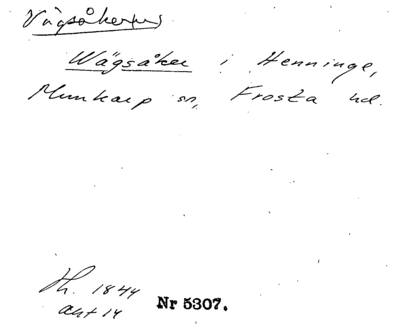 Vägsåkerhus
Wägsåker i Henninge,
Munkarp sn, Frosta hd.
Th. 1844
akt 14
Nr 5307.